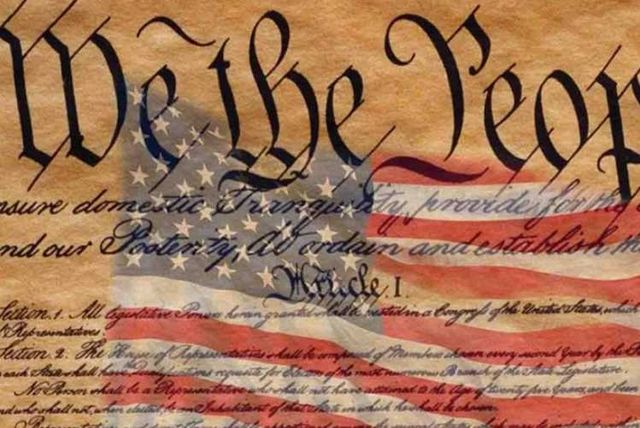 We the Peop
nsure domestic Tranquility, provide for the
nd our Posterity, do ordain and establish th
Article. I.
Section. 1. All legislative Powers herein granted shall be vested in a Congress of the United States, which
Representatives
Section. 2. The House of Representatives shall be composed of Members chosen every second Year by the
each State shall have Qualifications requisite for Electors of the most numerous Branch of the State Legislature.
No Person shall be a Representative who shall not have attained to the Age of twenty five Years, and been
nd who shall not, when elected, be an Inhabitant of that State in which he shall be chosen.